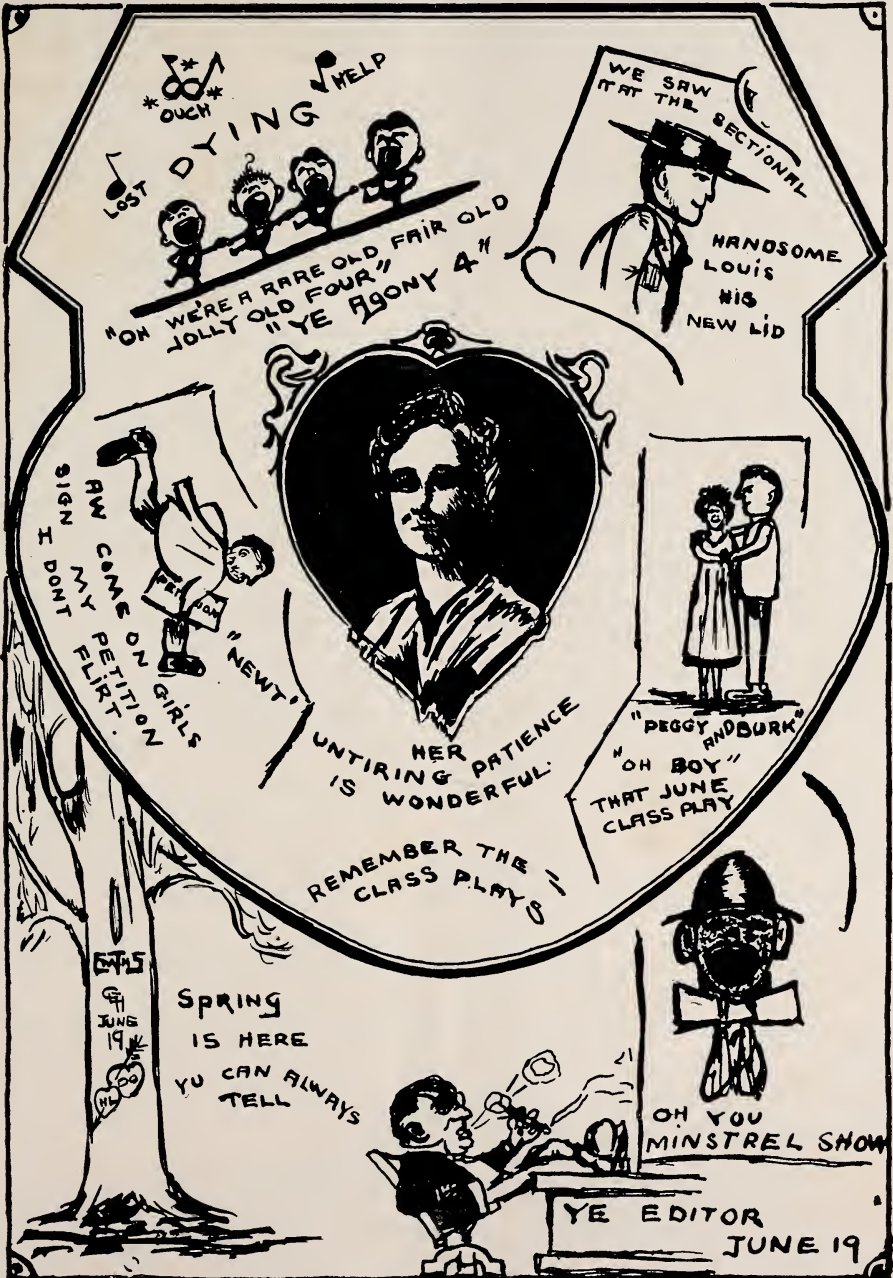 OUCH
HELP
LOST
DYING
"OH WE'RE A RARE OLD FAIR OLD
JOLLY OLD FOUR"
"YE AGONY 4"
WE SAW
IT AT THE
SECTIONAL
HANDSOME
LOUIS
HIS
NEW LID
AW COME ON GIRLS
SIGN MY PETITION
I DONT FLIRT.
PETITION
"NEWT"
HER
UNTIRING PATIENCE
IS WONDERFUL.
"PEGGY AND BURK"
"OH BOY"
THAT JUNE
CLASS PLAY
REMEMBER THE
CLASS PLAYS
JUNE
19
HL
SPRING
IS HERE
YU CAN ALWAYS
TELL
OH YOU
MINSTREL SHOW
YE EDITOR
JUNE 19